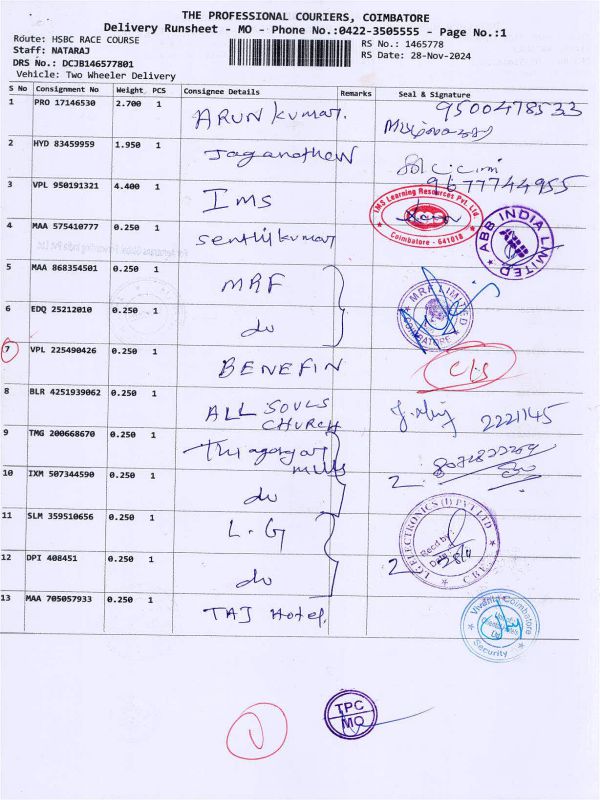 THE PROFESSIONAL COURIERS, COIMBATORE
Delivery Runsheet - MO - Phone No.:0422-3505555 - Page No.:1
Route: HSBC RACE COURSE
RS No.: 1465778
Staff: NATARAJ
RS Date: 28-Nov-2024
DRS No.: DCJB146577801
Vehicle: Two Wheeler Delivery
S No Consignment No Weight PCS Consignee Details Remarks Seal & Signature
1 PRO 17146530 2.700 1 ARUN kumar. 9500478533
2 HYD 83459959 1.950 1 Jaganathan
9677744955
3 VPL 950191321 4.400 1 Ims
IMS Learning Resources Pvt. Ltd
Coimbatore - 641018
ABB INDIA LIMITED
4 MAA 575410777 0.250 1 senthil kumar
5 MAA 868354501 0.250 1 MRF
MRF LIMITED
COIMBATORE
6 EDQ 25212010 0.250 1 do
7 VPL 225490426 0.250 1 BENEFIN C/S
8 BLR 4251939062 0.250 1 ALL SOULS CHURCH 2221145
9 TMG 200668670 0.250 1 Thiagarajar mills
10 IXM 507344590 0.250 1 do 2
11 SLM 359510656 0.250 1 L.G
LG ELECTRONICS (I) PVT LTD
Recd by:
Date:
28/11
CBE
12 DPI 408451 0.250 1 do 2
13 MAA 705057933 0.250 1 TAJ Hotel.
Vivanta Coimbatore
Security
TPC
MO